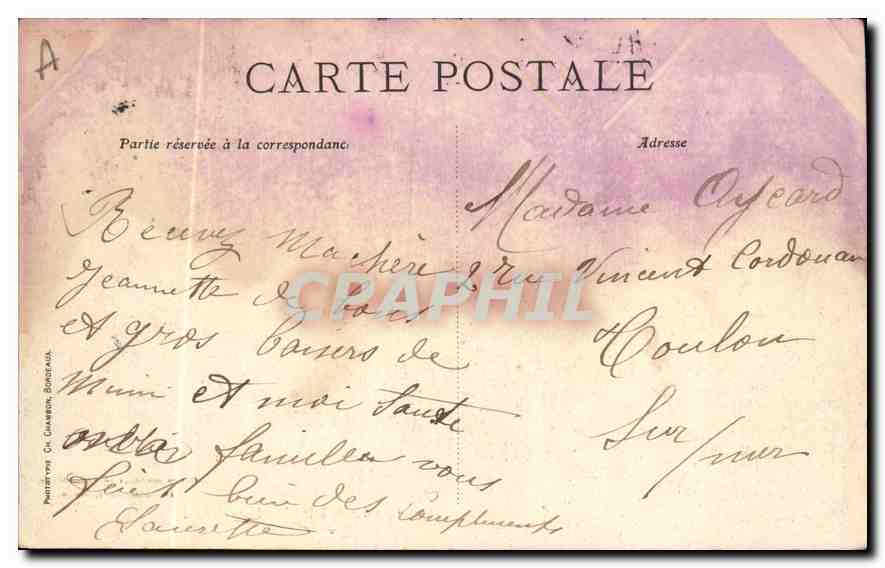 A
CARTE POSTALE
Partie réservée à la correspondance
Adresse
Madame Aycard
2 rue Vincent Cordouan
Toulon
Sur/mer
Recuvez Ma chère
Jeannette de bons
et gros baisers de
Mimi et moi toute
famille vous
fait bien des compliments
CPAPHIL
PHOTOTYPIE CH. CHAMBON, BORDEAUX